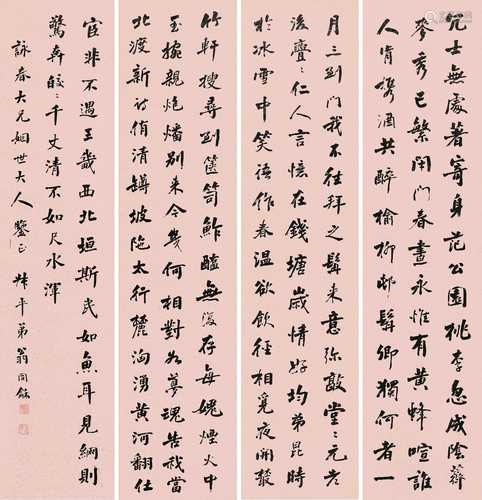 冗士無處著寄身范公園桃李忽成陰薺
麥秀已繁閉門春晝永惟有黃蜂喧誰
人肯攜酒共醉榆柳邨髯卿獨何者一
月三到門我不往拜之髯來意弥敦堂〻元老
後亹〻仁人言憶在錢塘歲情好均弟昆時
於冰雪中笑語作春溫欲飲徑相覓夜開叢
竹軒搜尋到篋笥鮓醢無復存每媿煙火中
玉捥親炮燔別來今幾何相對如夢魂告我當
北渡新詩侑清罇坡陁太行麓洶湧黃河翻仕
宦非不遇王畿西北垣斯民如魚耳見網則
驚奔皎〻千丈清不如尺水渾
詠春大兄姻世大人鑒正 叔平弟翁同龢